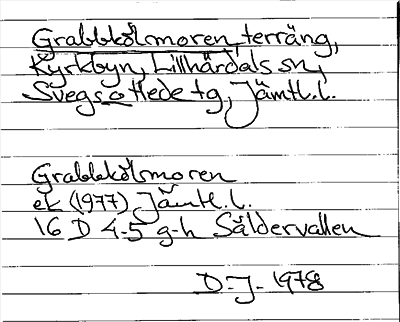 Grabbkölmoren, terräng,
Kyrkbyn, Lillhärdals sn,
Svegs o Hede tg, Jämtl.l.
Grabbkölmoren
ek (1977) Jämtl.l.
16 D 4-5 g-h Säldervallen
D-J- 1978